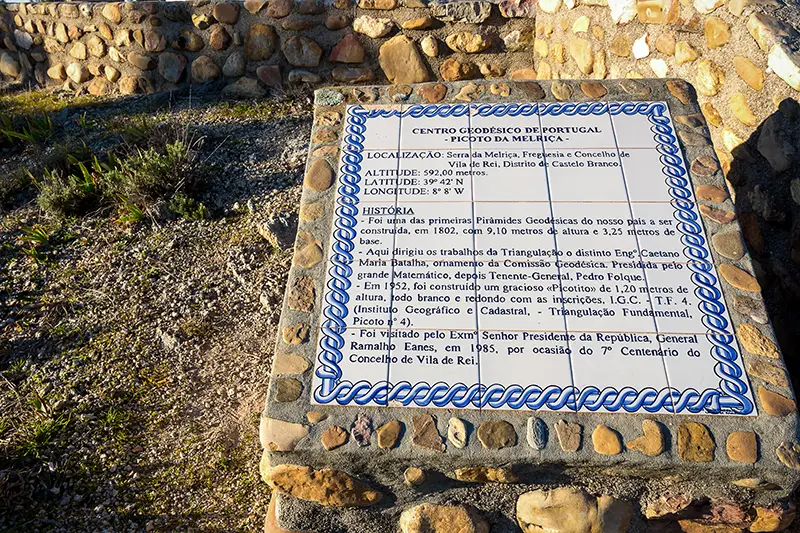 CENTRO GEODÉSICO DE PORTUGAL
- PICOTO DA MELRIÇA -
LOCALIZAÇÃO: Serra da Melriça, Freguesia e Concelho de
Vila de Rei, Distrito de Castelo Branco.
ALTITUDE: 592,00 metros.
LATITUDE: 39º 42' N
LONGITUDE: 8º 8' W
HISTÓRIA
- Foi uma das primeiras Pirâmides Geodésicas do nosso país a ser
construída, em 1802, com 9,10 metros de altura e 3,25 metros de
base.
- Aqui dirigiu os trabalhos da Triangulação o distinto Engº. Caetano
Maria Batalha, ornamento da Comissão Geodésica. Presidida pelo
grande Matemático, depois Tenente-General, Pedro Folque.
- Em 1952, foi construído um gracioso «Picotito» de 1,20 metros de
altura, todo branco e redondo com as inscrições, I.G.C. - T.F. 4.
(Instituto Geográfico e Cadastral, - Triangulação Fundamental,
Picoto nº 4).
- Foi visitado pelo Exmº Senhor Presidente da República, General
Ramalho Eanes, em 1985, por ocasião do 7º Centenário do
Concelho de Vila de Rei.